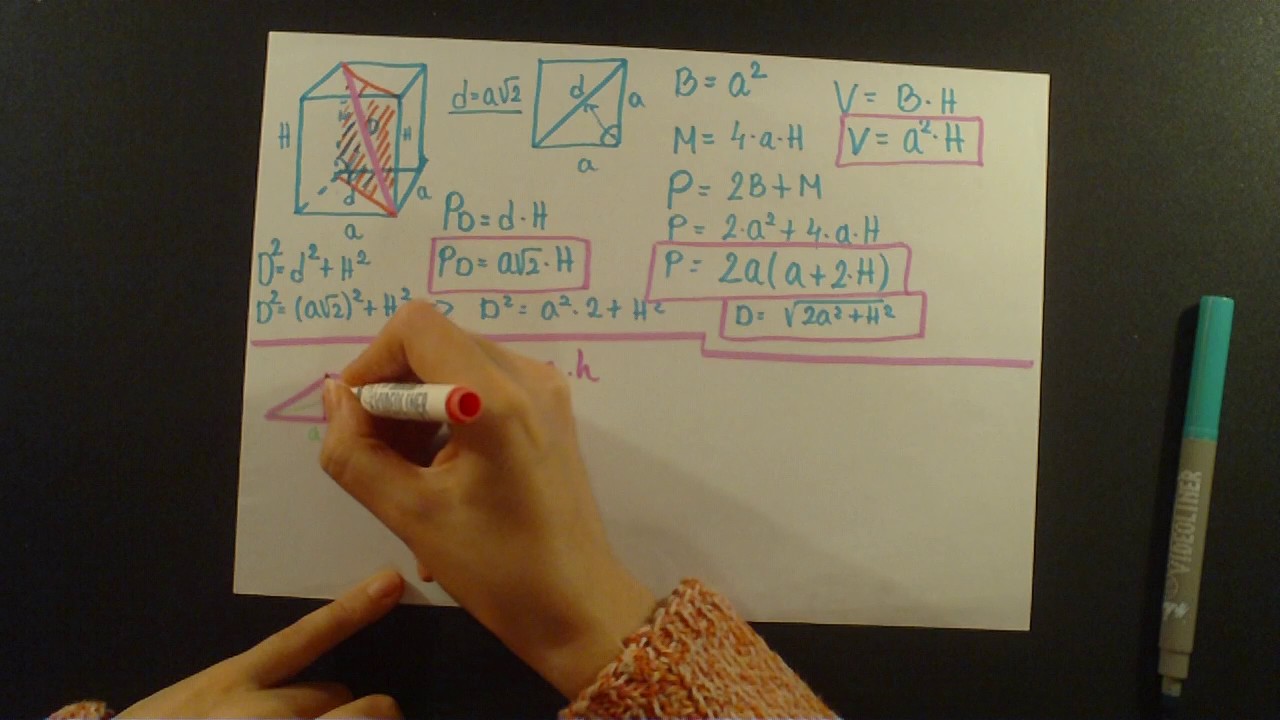 H
D
H
H
d
a
a
d=a√2
d
a
a
B = a²
M = 4·a·H
P = 2B+M
P = 2·a²+4·a·H
P = 2a(a+2·H)
V = B·H
V = a²·H
P_D = d·H
P_D = a√2·H
D² = d²+H²
D² = (a√2)²+H²
D² = a²·2+H²
D = √2a²+H²
·h
a
VIDEOLINER
VIDEOLINER